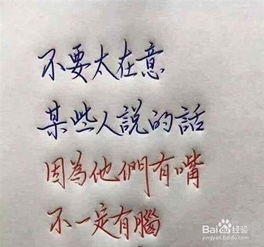 不要太在意
某些人說的話
因為他們有嘴
不一定有腦
Baidu经验